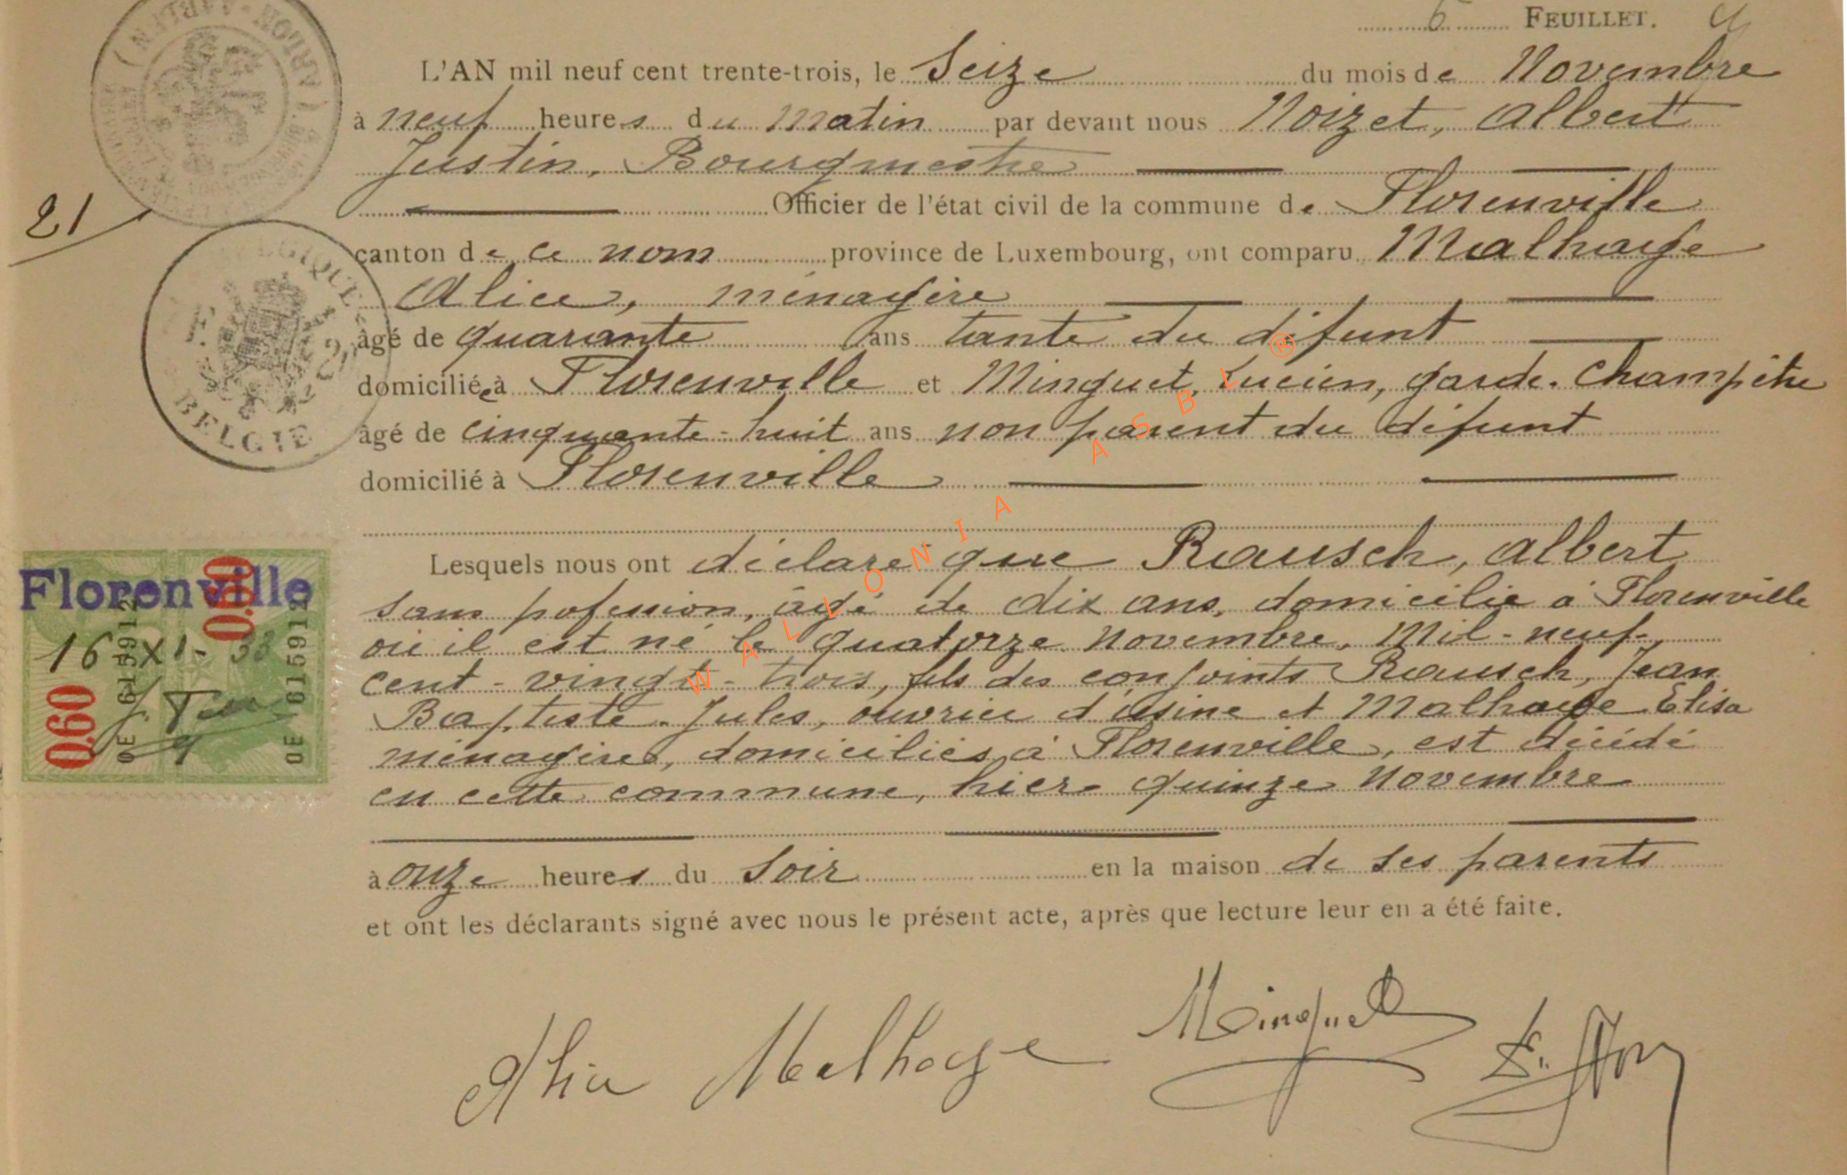 6 FEUILLET.
L'AN mil neuf cent trente-trois, le Seize du mois de Novembre
à neuf heures du matin par devant nous Noizet, Albert
Justin, Bourgmestre
21
Officier de l'état civil de la commune de Florenville
canton de ce nom province de Luxembourg, ont comparu Malhage
Alice, ménagère
âgé de quarante ans tante du défunt
domiciliée à Florenville et Minguet, Lucien, garde-champêtre
âgé de cinquante-huit ans non parent du défunt
BELGIE
domicilié à Florenville
WALLONIA ASBL ®
Lesquels nous ont déclaré que Rausch, Albert
Florenville
0.60
sans profession, âgé de dix ans, domicilié à Florenville
où il est né le quatorze Novembre, Mil-neuf-
16 XI. 33
cent-vingt-trois, fils des conjoints Rausch, Jean
0.60
Baptiste-Jules, ouvrier d'usine et Malhage Elisa
OE 615912
OE 615912
ménagère, domiciliés à Florenville, est décédé
en cette commune, hier quinze Novembre
à onze heures du Soir en la maison de ses parents
et ont les déclarants signé avec nous le présent acte, après que lecture leur en a été faite.
Alice Malhage Minguet